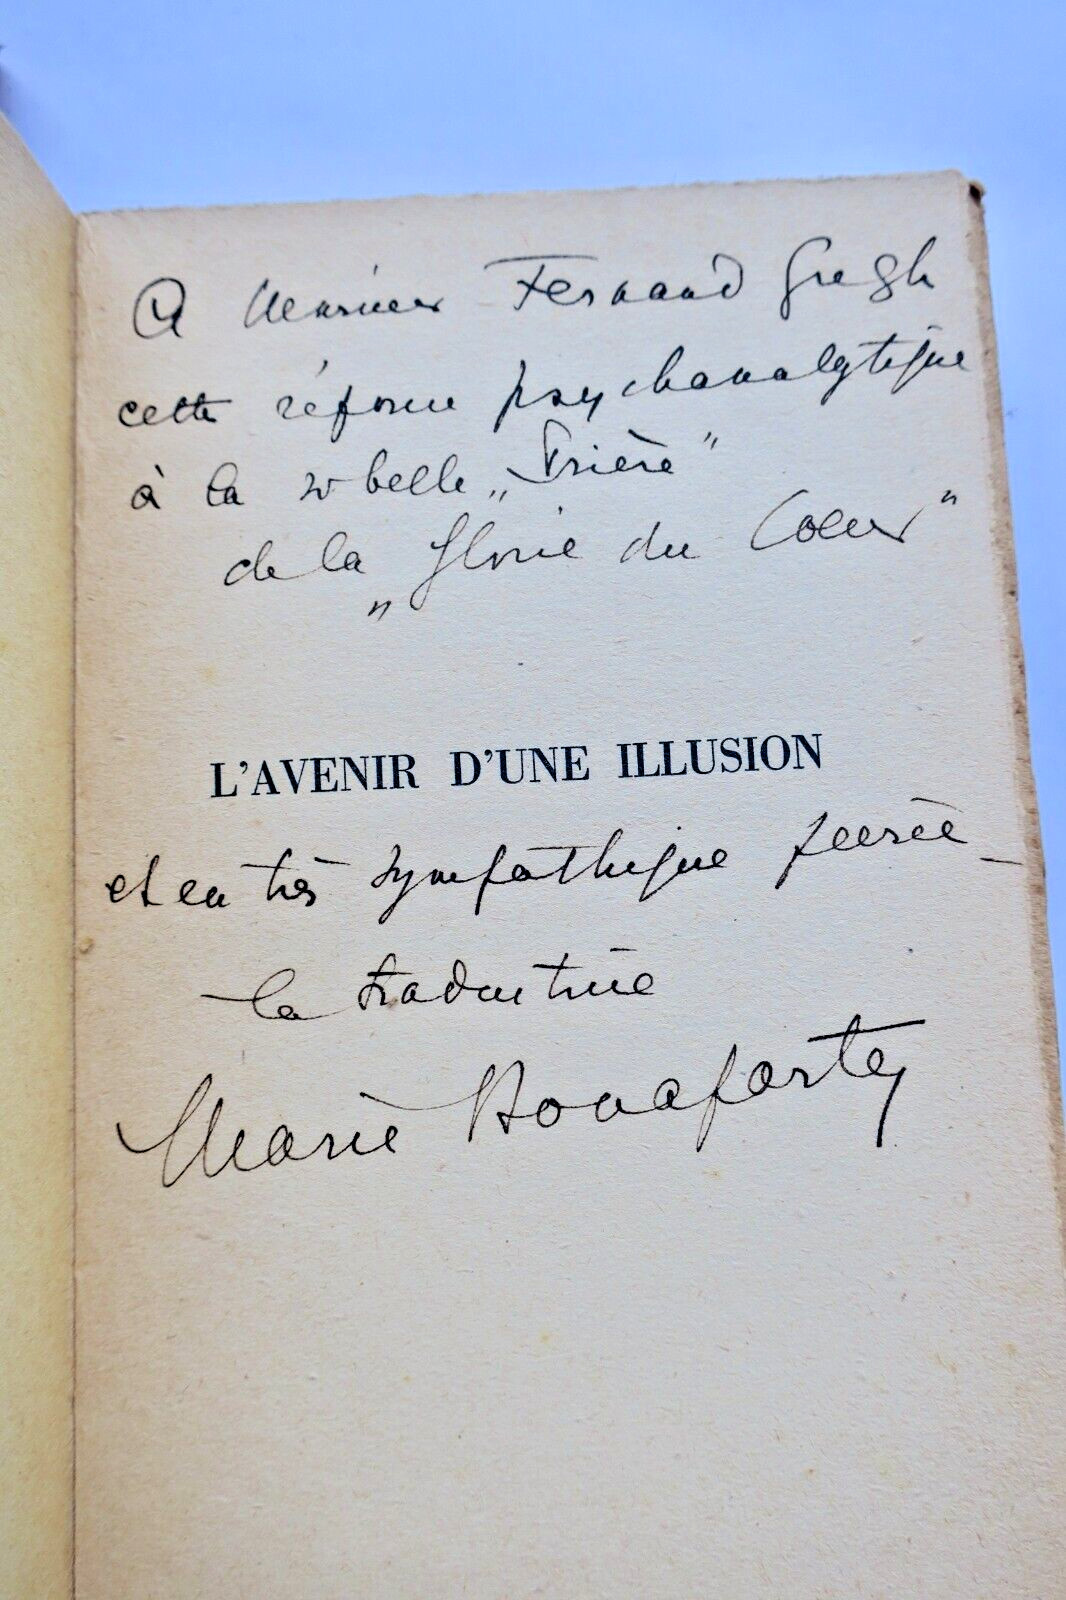 A Monsieur Fernand Gregh
cette réponse psychanalytique
à la si belle „Prière"
de la „Gloire du Coeur"
L'AVENIR D'UNE ILLUSION
et en très sympathique pensée _
la traductrice
Marie Bonaparte